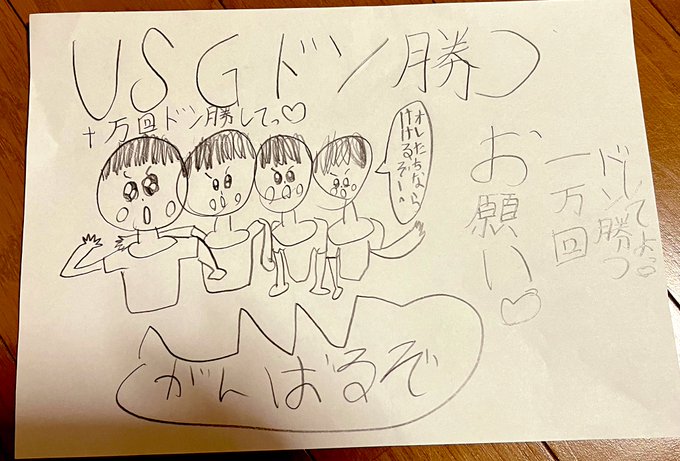 USGドン勝つ
十万回ドン勝してっ♡
オレたちなら
いけるぞー!!
お願い♡
一万回
ドン勝つ
してよっ♡
がんばるぞ